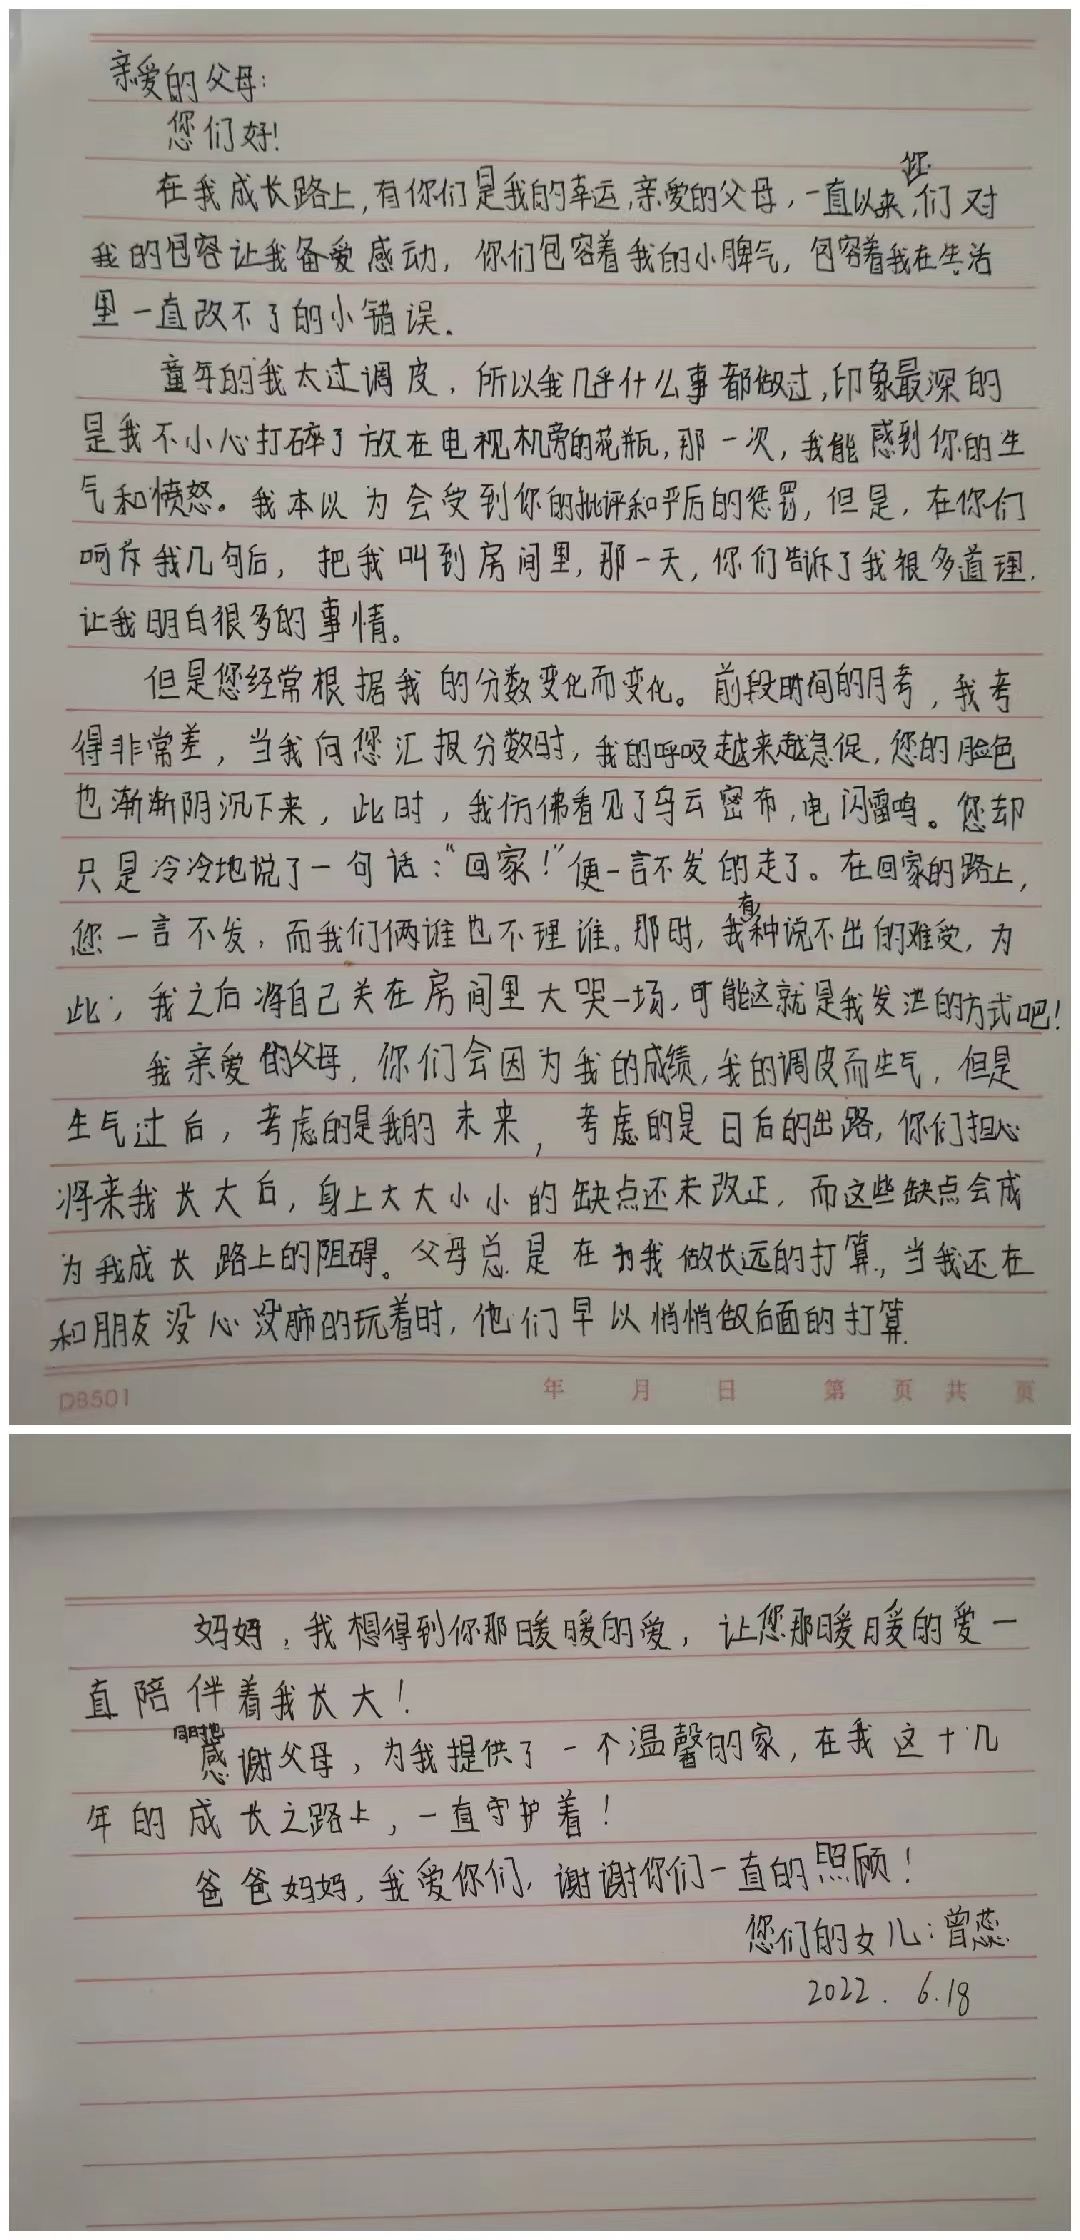 亲爱的父母:
您们好!
在我成长路上,有你们是我的幸运,亲爱的父母,一直以来,您们对
我的包容让我备爱感动,你们包容着我的小脾气,包容着我在生活
里一直改不了的小错误.
童年的我太过调皮,所以我几乎什么事都做过,印象最深的
是我不小心打碎了放在电视机旁的花瓶,那一次,我能感到你的生
气和愤怒。我本以为会受到你的批评和严厉的惩罚,但是,在你们
呵斥我几句后,把我叫到房间里,那一天,你们告诉了我很多道理.
让我明白很多的事情。
但是您经常根据我的分数变化而变化。前段时间的月考,我考
得非常差,当我向您汇报分数时,我的呼吸越来越急促,您的脸色
也渐渐阴沉下来,此时,我仿佛看见了乌云密布,电闪雷鸣。您却
只是冷冷地说了一句话:“回家!”便一言不发的走了。在回家的路上,
您一言不发,而我们俩谁也不理谁。那时,我有种说不出的难受,为
此,我之后将自己关在房间里大哭一场,可能这就是我发泄的方式吧!
我亲爱的父母,你们会因为我的成绩,我的调皮而生气,但是
生气过后,考虑的是我的未来,考虑的是日后的出路,你们担心
将来我长大后,身上大大小小的缺点还未改正,而这些缺点会成
为我成长路上的阻碍。父母总是在为我做长远的打算,当我还在
和朋友没心没肺的玩着时,他们早以悄悄做后面的打算.
D8501 年 月 日 第 页 共 页
妈妈,我想得到你那暖暖的爱,让您那暖暖的爱一
直陪伴着我长大!
同时也感谢父母,为我提供了一个温馨的家,在我这十几
年的成长之路上,一直守护着!
爸爸妈妈,我爱你们,谢谢你们一直的照顾!
您们的女儿:曾蕊
2022.6.18